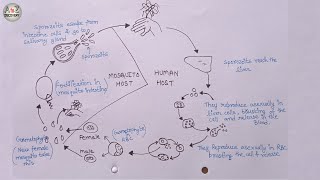 Sporozoite escape from
intestine cells & go to
salivary gland
Sporozoite
Fertilization in
mosquito intestine
MOSQUITO
HOST
HUMAN
HOST
Sporozoite reach the
liver
They reproduce asexually in
liver cells, bursting
the cell and release in the
Blood.
They Reproduce asexually in RBC,
bursting the cell & release
Gametocytes
Female
Male
Gametocytes
New female
mosquito takes
this